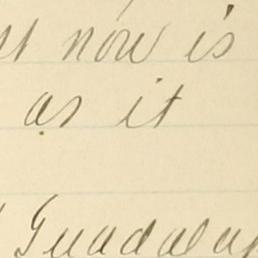 now is
as it
Guadalup